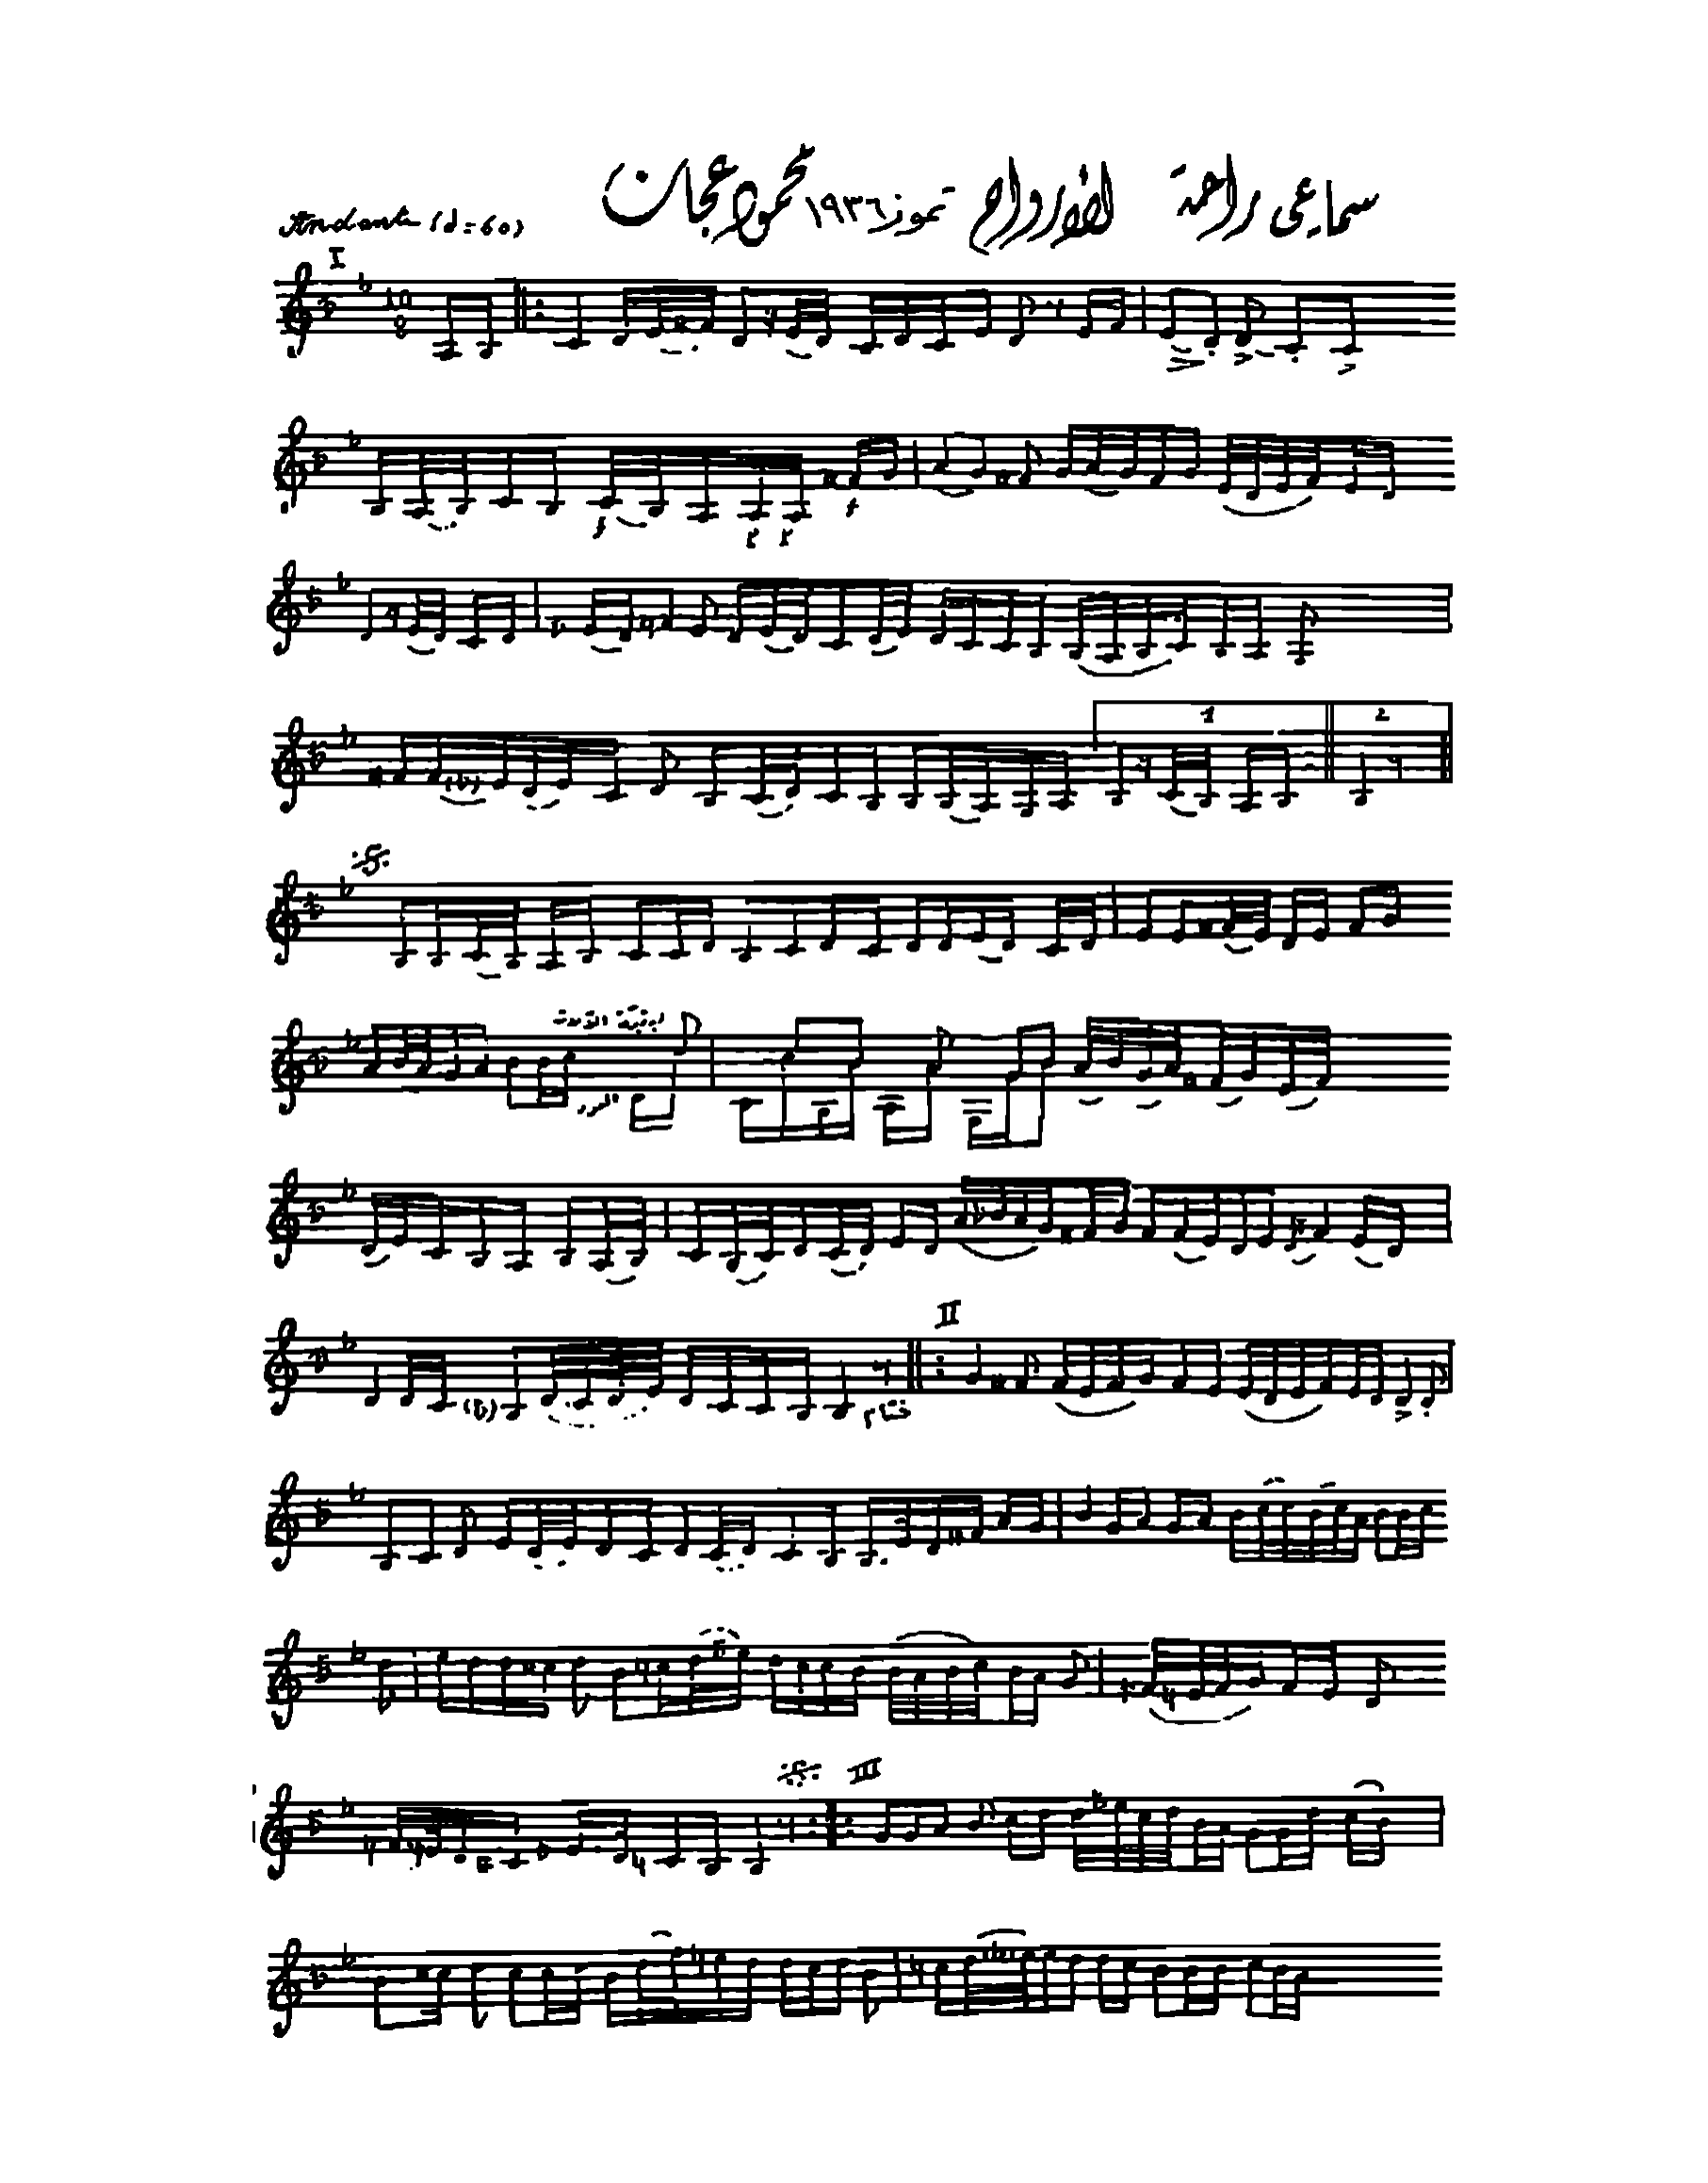 سماعي راحة الارواح تموز ١٩٣٦ محمود عجان
Andante (♩=60)
I
10
8
1 2
II
ختام
III